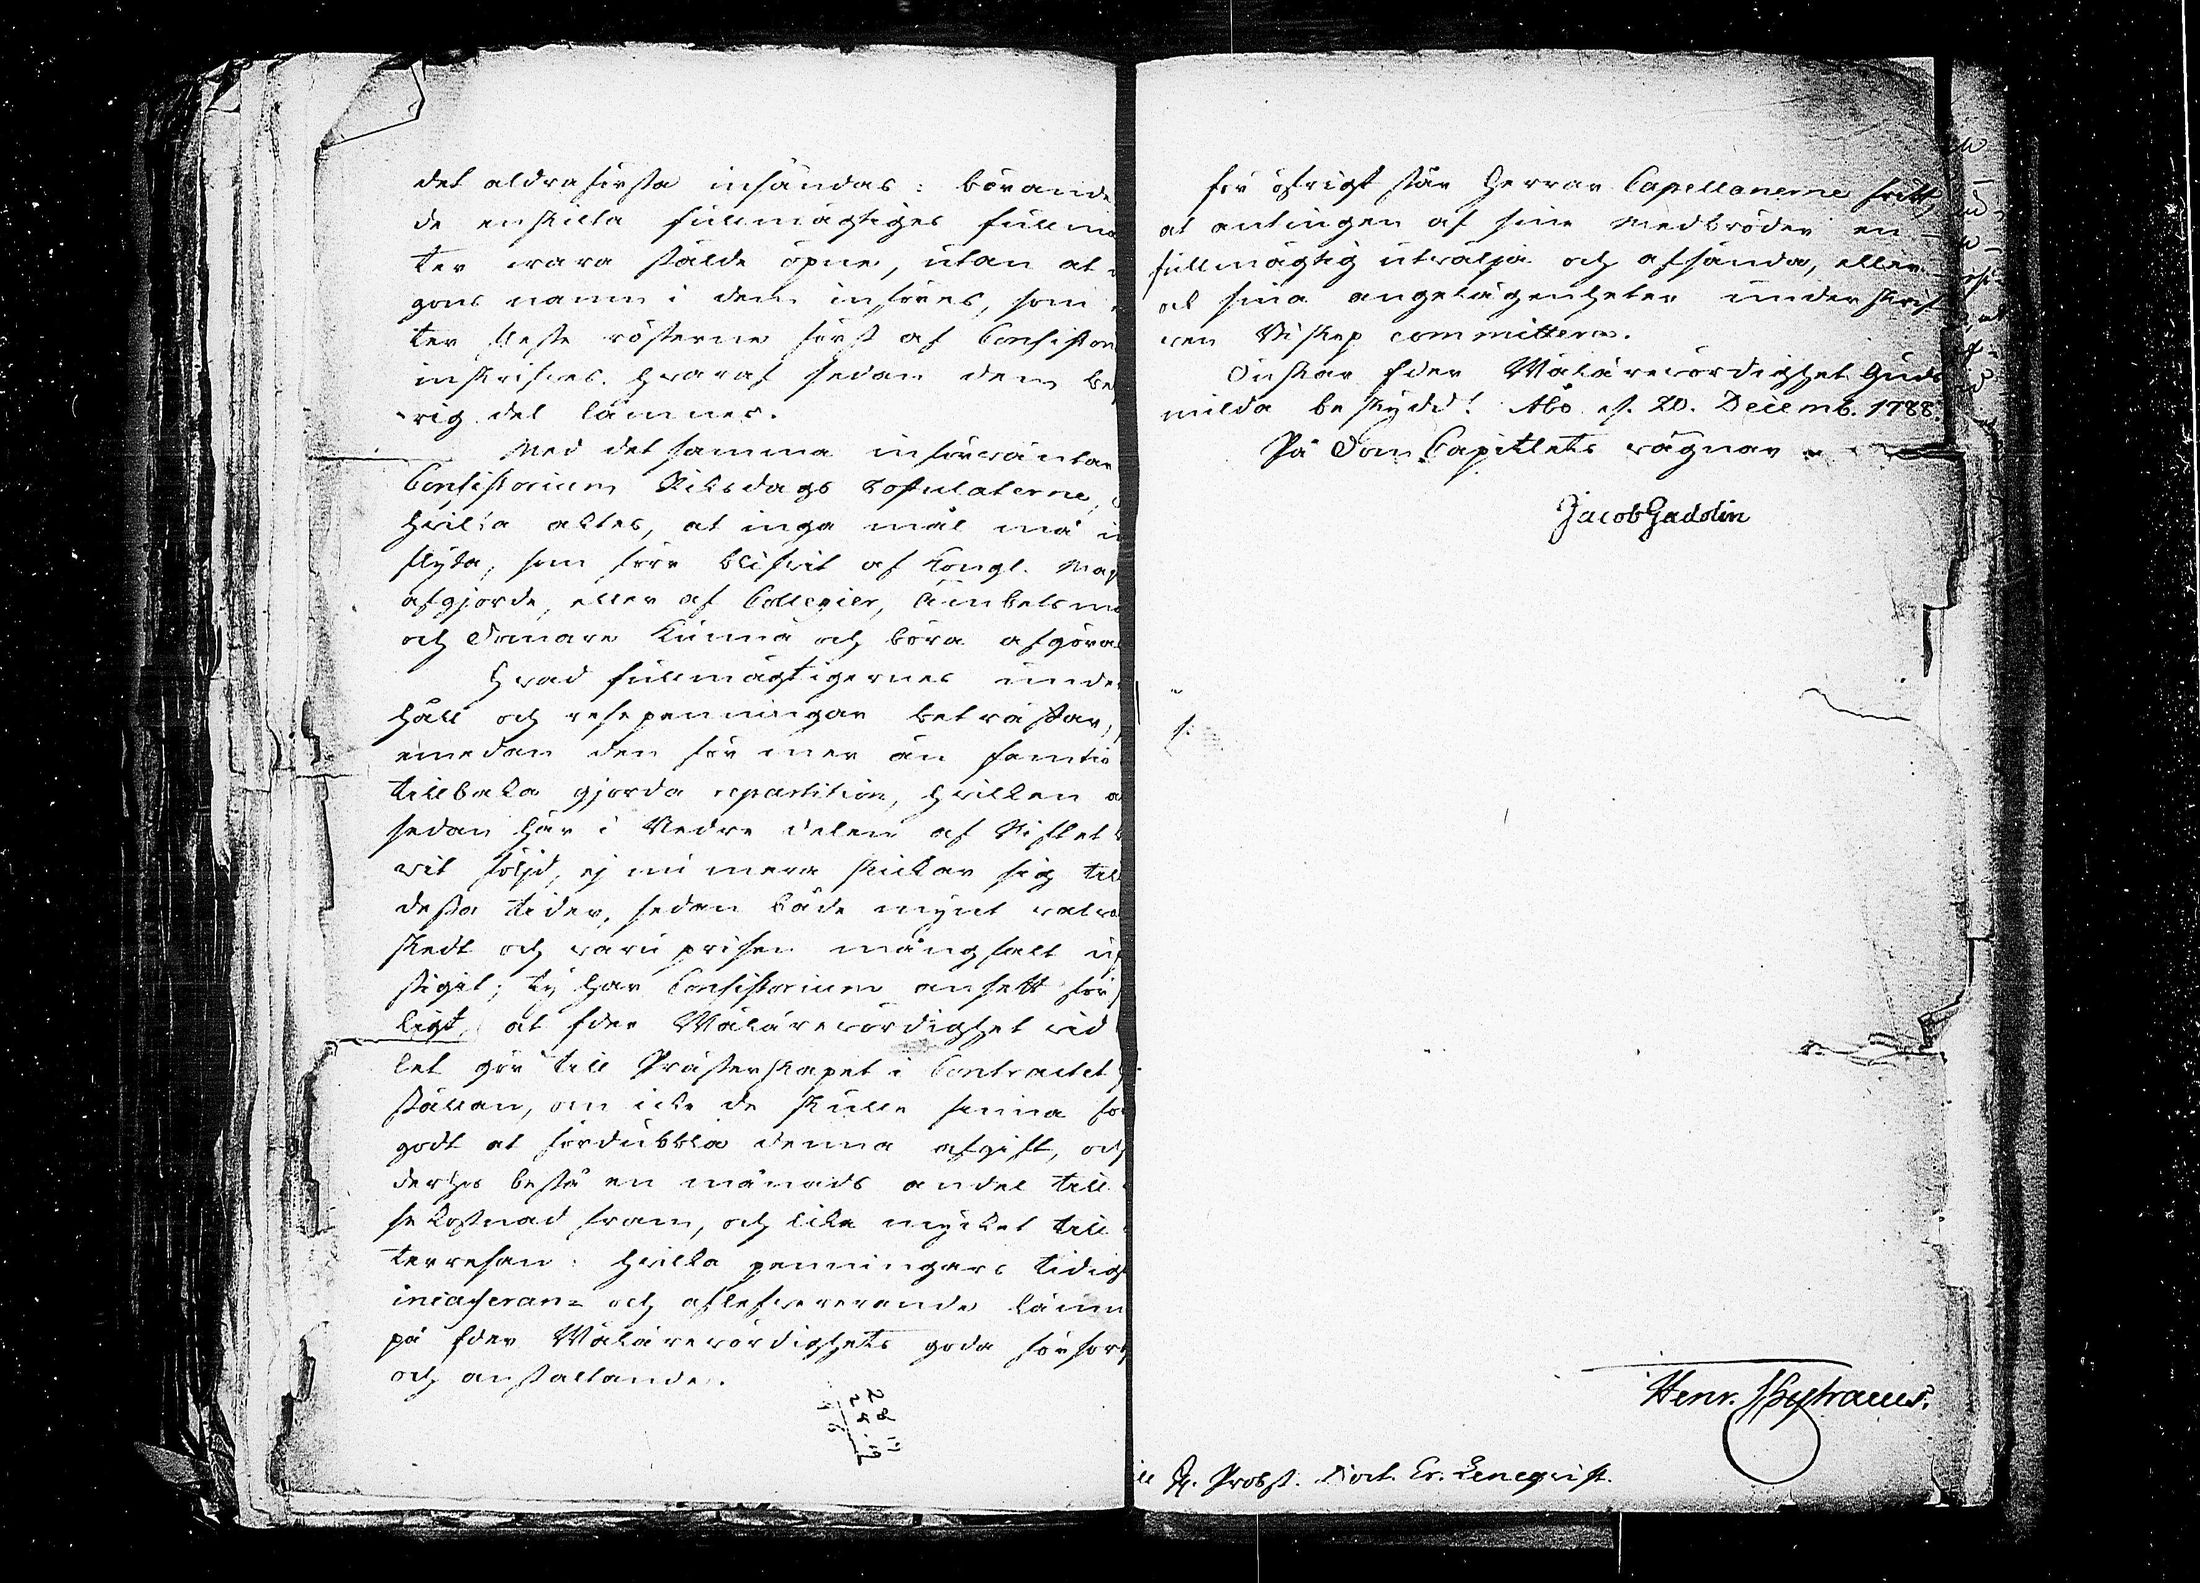 det aldraförsta insändas: börande
de enskilta fullmägtiges fullma
ter wara stälde öpne, utan at
gons namn i dem införes, som
ter fleste rösterne först af Consistor
inskrifves. Hvaraf sedan dem be
rig del lämnes.
Med det samma införwäntar
Consistorium Riksdags Postulaterne,
hvilka aktes, at inga mål må i
flyta, som förr blifvit af Kongl. Maj
afgjorde, eller af Collegier, Ämbetsmä
och Domare kunna och böra afgöra
Hvad fullmägtigernes under
håll och resepenningar beträffar,
emedan den för mer än femtio
tillbaka gjorda repartition, hvilken
sedan här i Nedre delen af Stiftet
wit följd, ej nu mera skickar sig till
dessa tider, sedan både mynt
skedt och varu prisen mångfalt up
stigit; ty har Consistorium ansett för
ligt, at Eder Wälärewördighet wid
let gör till Prästerskapet i Contractet
ställan, om icke de skulle finna för
godt at fördubbla denna afgift, och
derhos bestå en månads andel till
sekostnad fram, och lika mycket till
terresan: hvilka penningars tidig
incasseran= och aflefwererande lämn
på Eder Wälärewördighets goda försorg
och anstaltande.
för öfrigt står Herrar Capellanerne fritt,
at antingen af sine Medbröder en
fullmägtig utwälja och afsända, eller
at sina angelägenheter underskrif
ven Biskop committera.
Önskar Eder Wälärewördighet Guds
milda beskydd! Åbo d. 20. Decemb. 1788.
På Dom Capitlets wägnar
Jacob Gadolin
Henr.
Hr. Probst. Doct. Er. Lencqvist.